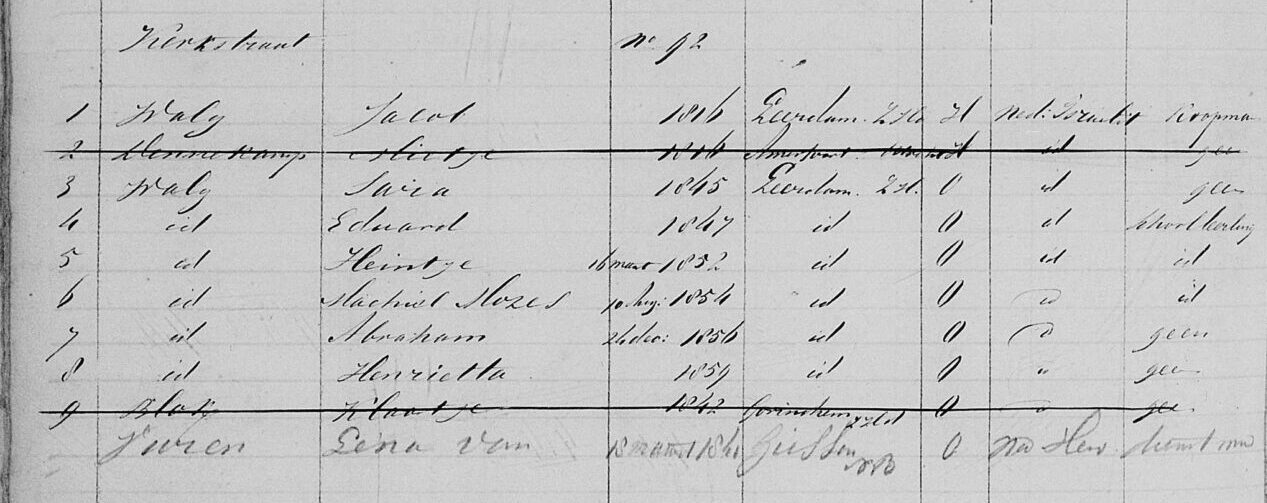 Kerkstraat No 92
1 Walg Jacob 1816 Leerdam Z Hd H Ned: Israelit Koopma
2 Dennekamp Mietje 1816 Amersfoort H id geen
3 Walg Sara 1845 Leerdam Z Hd. O id geen
4 id Eduard 1847 id O id schoolleerling
5 id Heintje 16 maart 1852 id O id id
6 id Machiel Mozes 10 Aug: 1854 id O id id
7 id Abraham 24 dec: 1856 id O id geen
8 id Henrietta 1859 id O geen
9 Blok Klaatje 1842 Gorinchem Z Hd O geen
Vuren Lena van 18 maart Giessen NB O Ned Herv